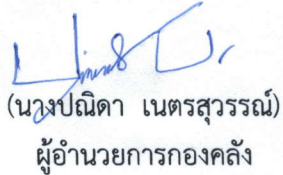 (นางปณิดา เนตรสุวรรณ์)
ผู้อำนวยการกองคลัง